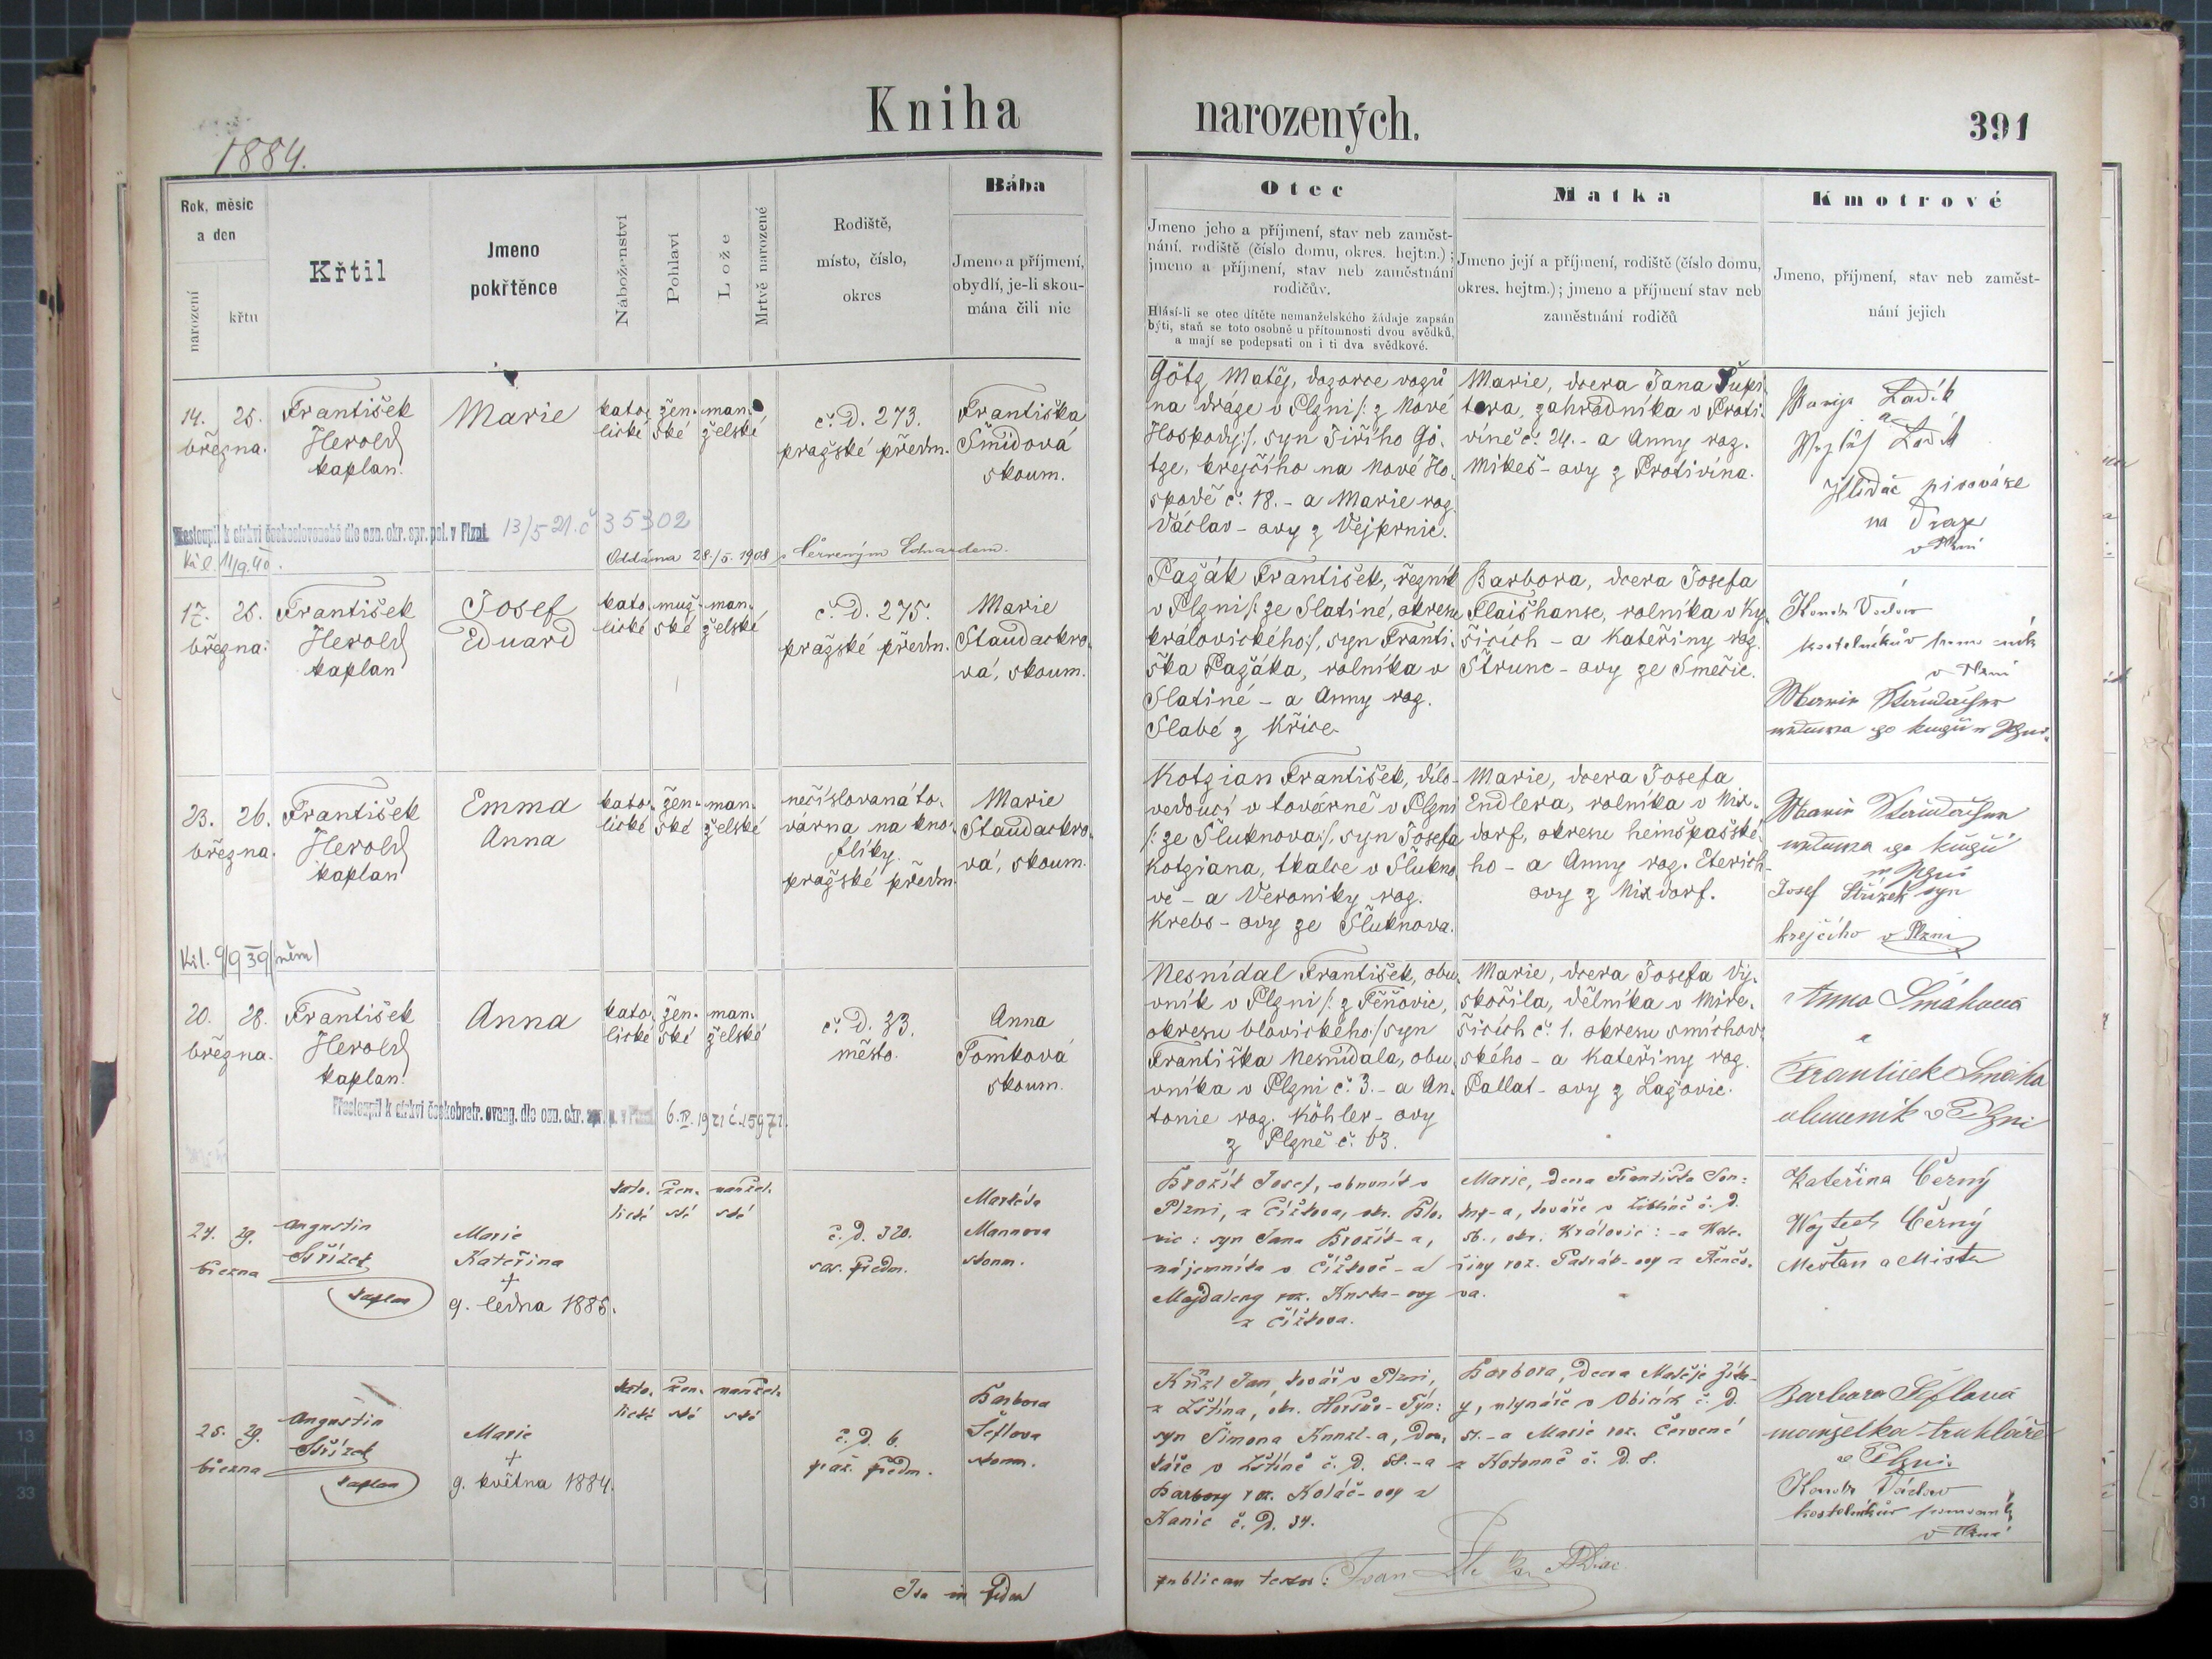 Kniha narozených.
391
1884.
Rok, měsíc
a den
narození
křtu
Křtil
Jmeno
pokřtěnce
Náboženství
Pohlaví
Lože
Mrtvě narozené
Rodiště,
místo, číslo,
okres
Bába
Jmeno a příjmení,
obydlí, je-li skou-
mána čili nic
Otec
Jmeno jeho a příjmení, stav neb zaměst-
nání, rodiště (číslo domu, okres. hejtm.);
jmeno a příjmení, stav neb zaměstnání
rodičův.
Hlásí-li se otec dítěte nemanželského žádaje zapsán
býti, staň se toto osobně u přítomnosti dvou svědků,
a mají se podepsati on i ti dva svědkové.
Matka
Jmeno její a příjmení, rodiště (číslo domu,
okres. hejtm.); jmeno a příjmení stav neb
zaměstnání rodičů
Kmotrové
Jmeno, příjmení, stav neb zaměst-
nání jejich
14. 25.
března.
František
Herold
kaplan.
Marie
kato-
lické
žen-
ské
man-
želské
č. D. 273.
pražské předm.
Františka
Šmídová
skoum.
Götz Matěj, dozorce vozů
na dráze v Plzni /: z Nové
Hospody :/, syn Jiřího Gö-
tze, krejčího na Nové Ho-
spodě č. 18. - a Marie roz.
Václav - ovy z Vejprnic.
Marie, dcera Jana Šupi-
tara, zahradníka v Proti-
víně č. 24. - a Anny roz.
Mikeš - ovy z Protivína.
Marija Ladik
a
Ladik
Hlídač pivováre
na Praze
v Plzni
Přestoupil k církvi československé dle ozn. okr. spr. pol. v Plzni. 13/5 21. č 35302
Oddána 28./5. 1908 s Červeným Eduardem.
17. 25.
března.
František
Herold
kaplan
Josef
Eduard
kato-
lické
muž-
ské
man-
želské
č. D. 275.
pražské předm.
Marie
Staudackro-
vá, skoum.
Pažák František, řezník
v Plzni /: ze Slatiné, okresu
královického :/, syn Franti-
ška Pažáka, rolníka v
Slatině - a Anny roz.
Slabé z Křice.
Barbora, dcera Josefa
Flaišhanse, rolníka v Ky-
šicích - a Kateřiny roz.
Štrunc - ovy ze Smečic.
v Plzni
23. 26.
března.
František
Herold
kaplan
Emma
Anna
kato-
lické
žen-
ské
man-
želské
nečíslovaná to-
várna na kno-
flíky.
pražské předm.
Marie
Staudackro-
vá, skoum.
Kotzian František, dílo-
vedoucí v továrně v Plzni
/: ze Šluknova :/, syn Josefa
Kotziana, tkalce v Šlukno-
vě - a Veroniky roz.
Krebs - ovy ze Šluknova.
Marie, dcera Josefa
Endlera, rolníka v Mix-
dorf, okresu heinšpašské-
ho - a Anny roz. Eterich-
ovy z Mixdorf.
Josef Střížek syn
krejčího v Plzni
20. 28.
března.
František
Herold
kaplan.
Anna
kato-
lické
žen-
ské
man-
želské
č. D. 33.
město.
Anna
Tomková
skoum.
Nesnídal František, obu-
vník v Plzni /: z Těňovic,
okresu blovického :/ syn
Františka Nesnídala, obu-
vníka v Plzni č. 3. - a An-
tonie roz. Köhler - ovy
z Plzně č. 63.
Marie, dcera Josefa Vy-
skočila, dělníka v Mire-
šicích č. 1. okresu smíchov-
ského - a Kateřiny roz.
Pallat - ovy z Lažovic.
Anna Smáhová
a
František Smáha
obuvník v Plzni
Přestoupil k církvi českobratr. evang. dle ozn. okr. spr. p. v Plzni 6. IV. 1921 č. 15971.
24. 29.
března
Augustin
Střízek
kaplan
Marie
Kateřina
+
9. ledna 1885.
kato-
lické
žen-
ské
manžel-
ské
č. D. 320.
sas. předm.
Markéta
Mannova
skoum.
Brožík Josef, obuvník v
Plzni, z Čížkova, okr. Blo-
vic: syn Jana Brožík-a,
nájemníka v Čížkově - a
Majdaleny roz. Krska - ovy
z Čížkova.
Marie, dcera Františka
okr. Královic: - a Kate-
řiny roz.
Kateřina Černý
Wojtech Černý
Mešťan a Mistr
25. 29.
března
Augustin
Střízek
kaplan
Marie
+
9. května 1884.
kato-
lické
žen-
ské
manžel-
ské
č. D. 6.
praž. předm.
Barbora
Šéflova
skoum.
Jan, kovář v Plzni,
z Lštína, okr. Horšův-Týn:
syn Šimona
v Lštíně č. D. 58. - a
Barbory roz. Koláč - ovy z
Kanic č. D. 34.
Barbora, dcera Matěje
mlynáře v
- a Marie roz. Červené
č. D. 8.
Barbara Šéflová
manželka truhláře
v Plzni.
Václav
v Plzni
Ita in fidem
publicam testor: